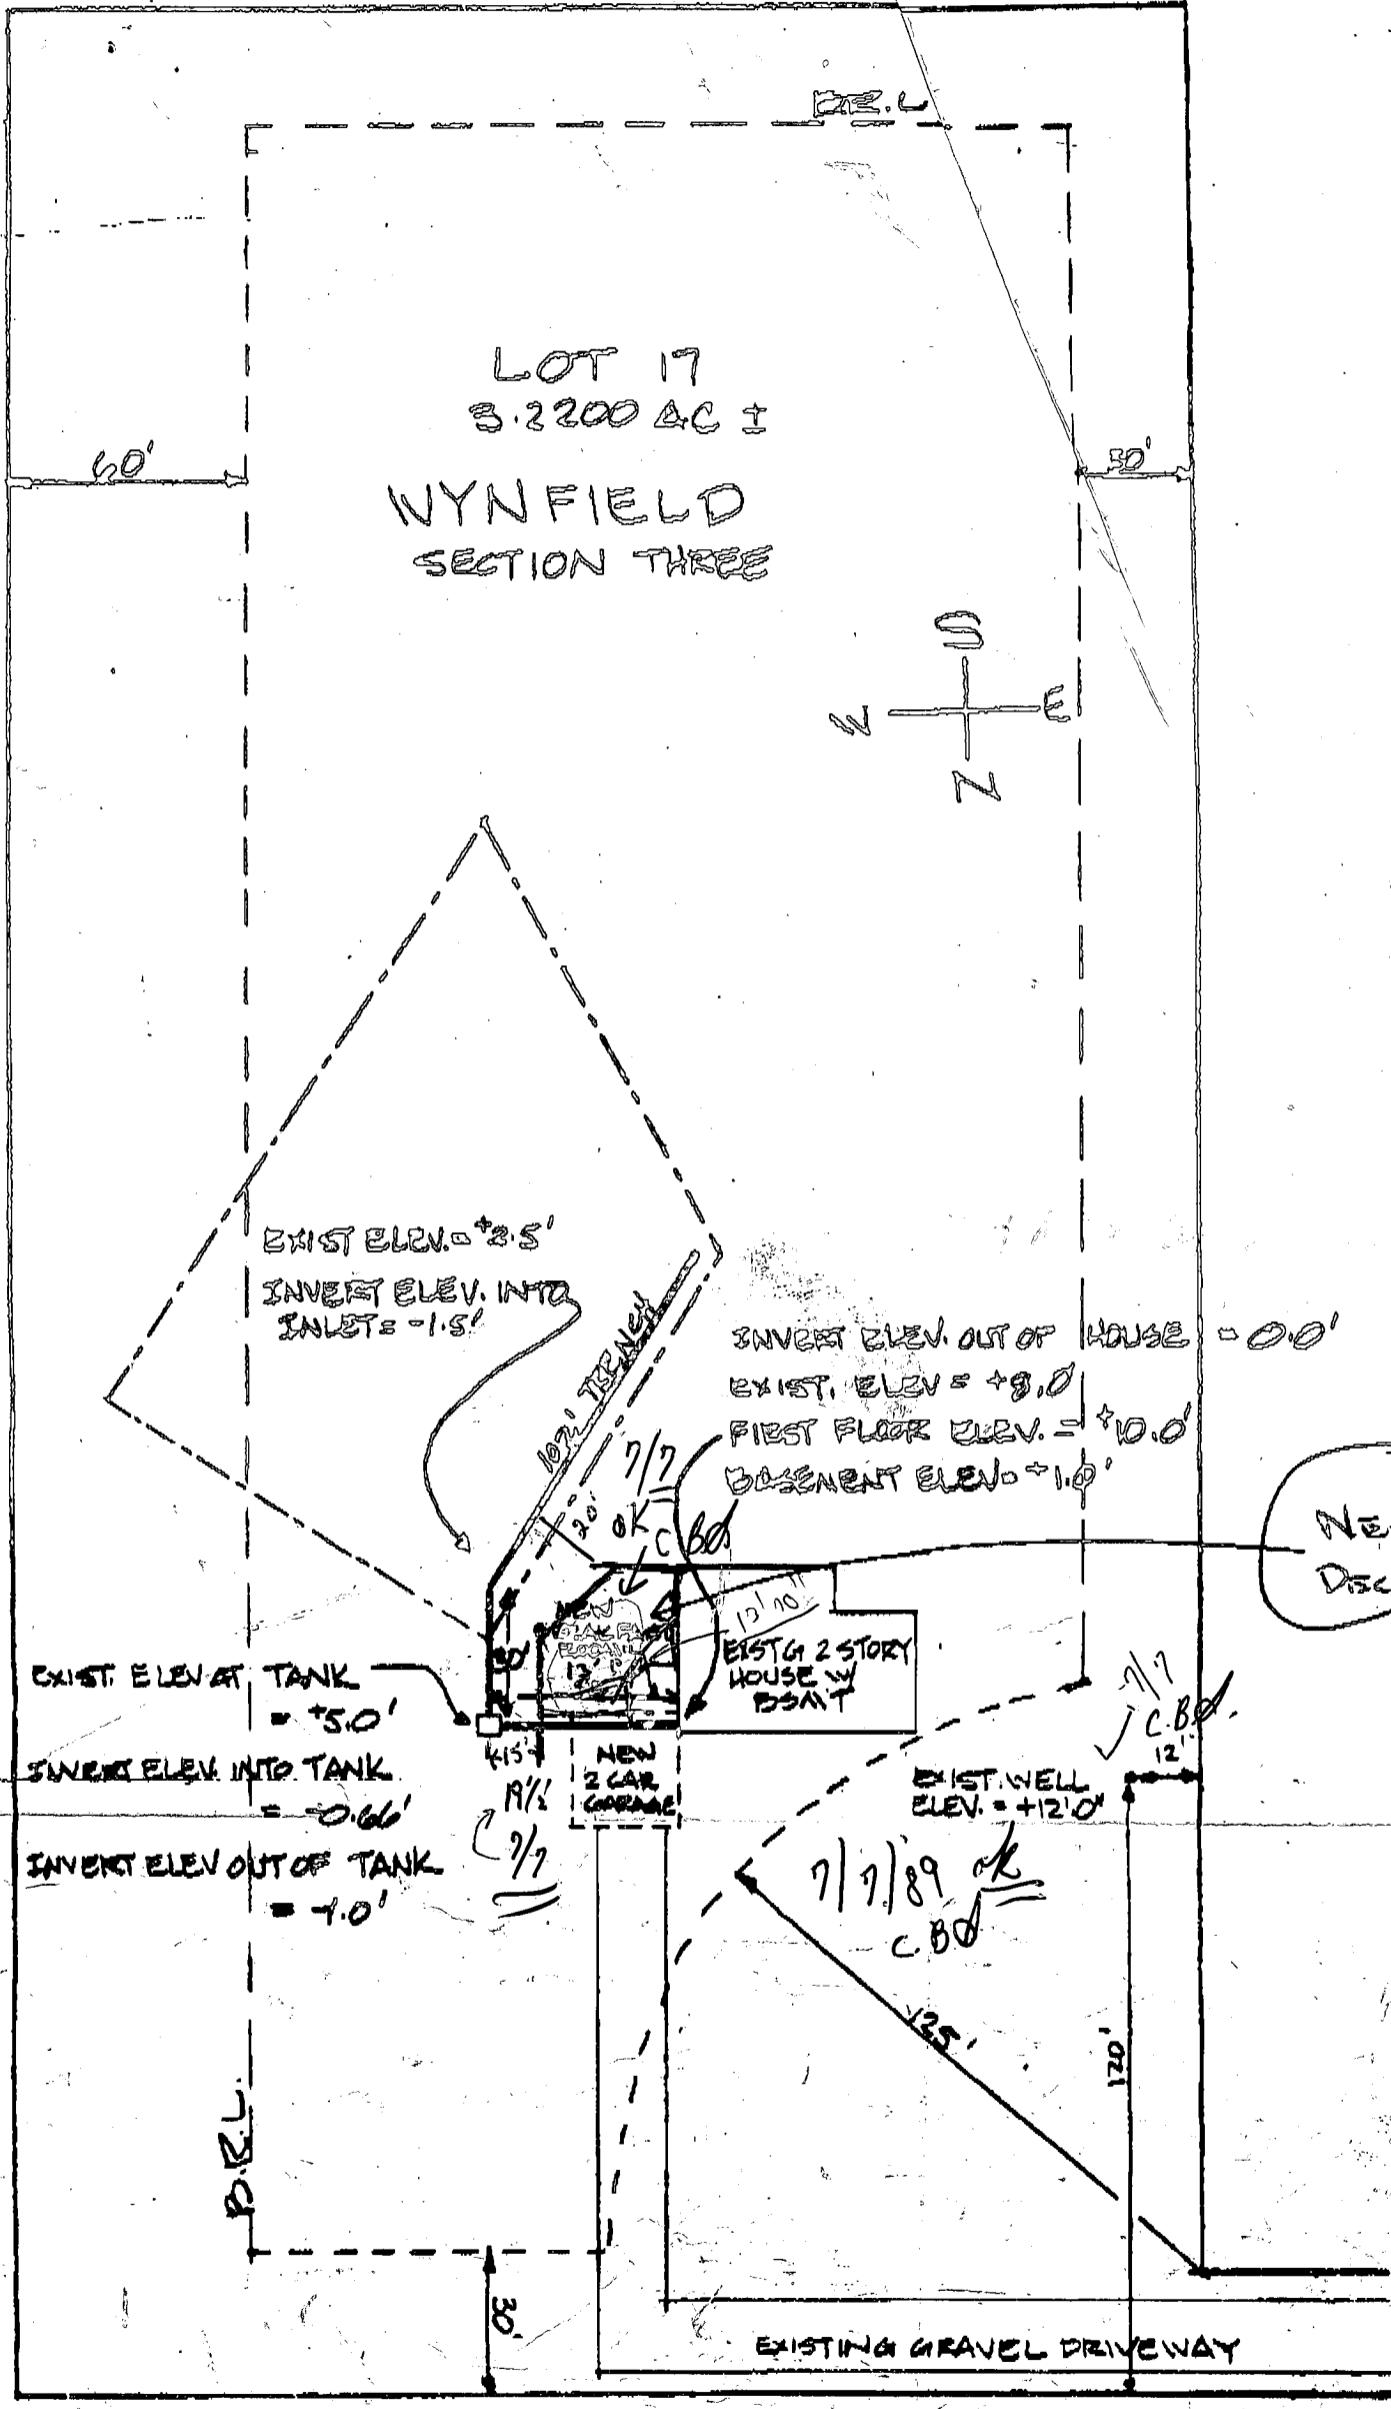 B.R.L
LOT 17
3.2200 AC ±
60'
30'
WYNFIELD
SECTION THREE
S
W E
N
EXIST ELEV. = +2.5'
INVERT ELEV. INTO
INLET = -1.5'
TRENCH
INVERT ELEV. OUT OF HOUSE = 0.0'
EXIST. ELEV = +8.0'
FIRST FLOOR ELEV. = +10.0'
BASEMENT ELEV = +1.0'
7/7
OK
20'
NE
DISC
NEW
13'10"
30'
EXIST'G 2 STORY
HOUSE W/
BSMT
EXIST. ELEV AT TANK
= +5.0'
INVERT ELEV. INTO TANK
= -0.66'
INVERT ELEV OUT OF TANK
= -1.0'
15'
19½'
7/7
NEW
2 CAR
GARAGE
7/7
12'
EXIST. WELL
ELEV. = +12'0"
7/7/89 ok
125'
120'
B.R.L.
30'
EXISTING GRAVEL DRIVEWAY